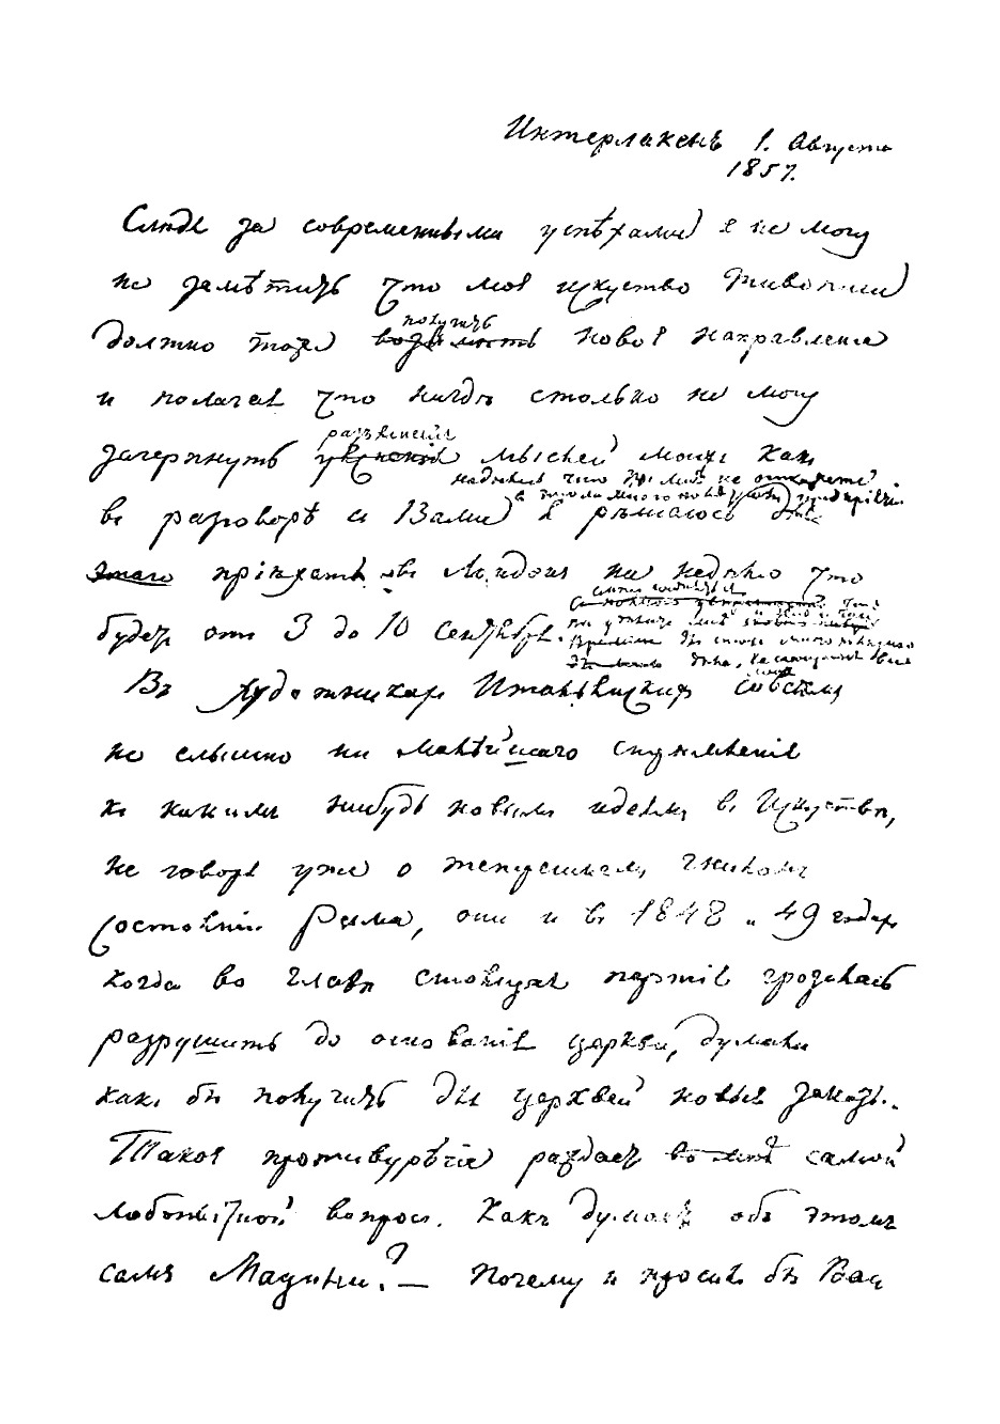 Интерлакенъ 1. Августа
1857.
Следя за современными успѣхами я не могу
не замѣтить что мое искуство живописи
должно тоже получить новое направление
и полагая что нигдѣ столько не могу
зачерпнуть разъясненія мыслей моихъ какъ
въ разговорѣ съ Вами я рѣшаюсь
надѣясь что Вы мнѣ не откажете
этаго пріѣхать въ Лондонъ на недѣлю что
будетъ отъ 3 до 10 сентября.
Въ художникахъ Итальянскихъ совсемъ
не слышно ни малѣйшаго стремленія
къ какимъ нибудь новымъ идеямъ въ Искуствѣ,
не говоря уже о теперешнемъ гниломъ
состояніи Рима, они и въ 1848 и 49 годахъ
когда во главѣ стоящая партія грозилась
разрушить до основанія церкви, думали
какъ бы получить для церквей новыя заказы.
Такое противурѣчіе раздаетъ во мнѣ самой
любопытной вопросъ. Какъ думаетъ объ этомъ
самъ Мадзини? — Почему и просилъ бы Васъ